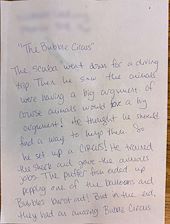 "The Bubble Circus"
The scuba went down for a diving
trip. Then he saw the animals
were having a big argument of
course animals would have a big
argument! He thought he should
find a way to help them. So
he set up a CIRCUS! He trained
the shark and gave the animals
jobs. The puffer fish ended up
popping one of the balloons and
Bubbles burst out! But in the end,
they had an amazing Bubble Circus